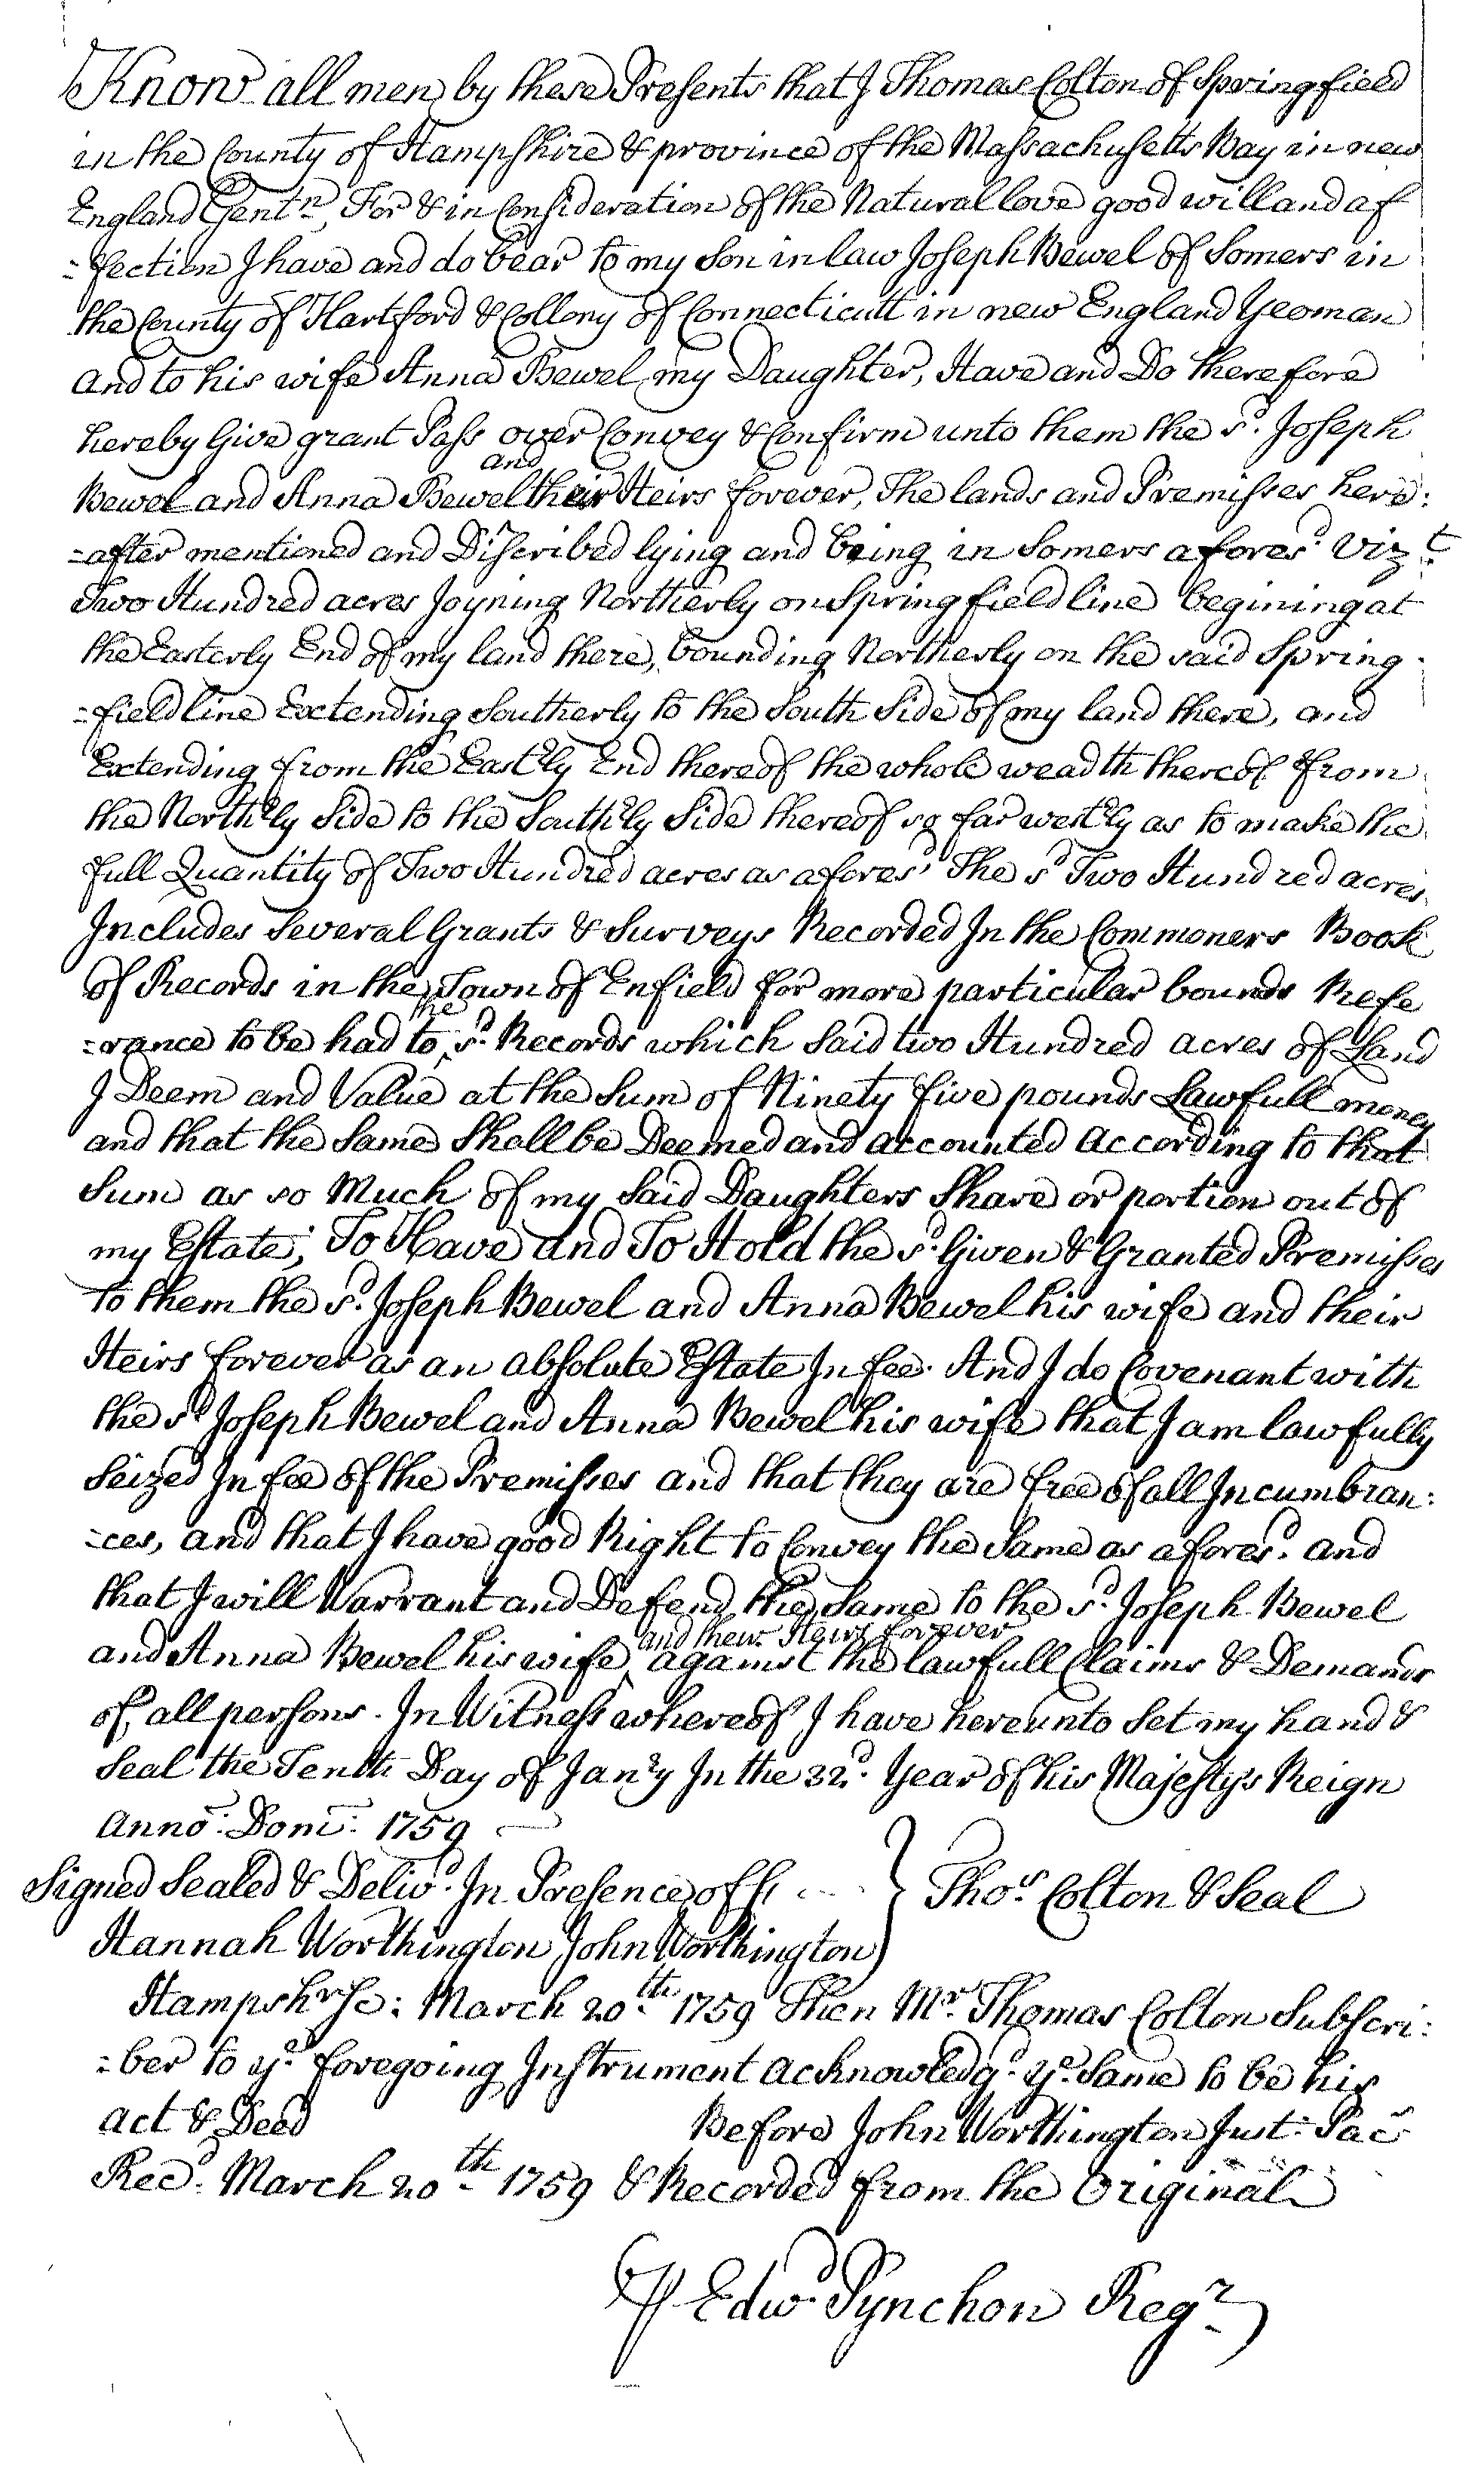 Know all men by these Presents that I Thomas Colton of Springfield
in the County of Hampshire & province of the Massachusetts Bay in new
England Gentn, For & in Consideration of the Natural love good will and af
-fection I have and do bear to my Son in law Joseph Bewel of Somers in
the County of Hartford & Collony of Connecticutt in new England Yeoman
and to his wife Anna Bewel my Daughter, Have and Do therefore
hereby Give grant Pass over Convey & Confirm unto them the sd. Joseph
and
Bewel and Anna Bewel their Heirs forever, The lands and Premisses here:
-after mentioned and Discribed lying and being in Somers aforesd. Vizt.
Two Hundred acres Joyning Northerly on Springfield line begining at
the Easterly End of my land there, bounding Northerly on the said Spring-
-field line Extending Southerly to the South Side of my land there, and
Extending from the Eastrly End thereof the whole weadth thereof from
the Northrly Side to the Southrly Side thereof so far westrly as to make the
full Quantity of Two Hundred acres as aforesd The sd Two Hundred acres
Includes Several Grants & Surveys Recorded In the Commoners Book
of Records in the Town of Enfield for more particular bounds Refe
the
-rance to be had to sd. Records which said two Hundred acres of Land
I Deem and Value at the Sum of Ninety five pounds Lawfull money
and that the Same Shall be Deemed and accounted According to that
Sum as so Much of my Said Daughters Share or portion out of
my Estate; To Have and To Hold the sd. Given & Granted Premisses
to them the sd. Joseph Bewel and Anna Bewel his wife and their
Heirs forever as an absolute Estate In fee. And I do Covenant with
the sd Joseph Bewel and Anna Bewel his wife that I am lawfully
Seized In fee of the Premisses and that they are free of all Incumbran:
-ces, and that I have good Right to Convey the Same as aforesd. and
that I will Warrant and Defend the Same to the sd. Joseph Bewel
and their Heirs forever
and Anna Bewel his wife against the lawfull Claims & Demands
of all persons. In Witness whereof I have hereunto Set my hand &
Seal the Tenth Day of Janry In the 32d. Year of his Majestys Reign
Anno: Domi: 1759
Signed Sealed & Delivd. In Presence off } Thos. Colton & Seal
Hannah Worthington John Worthington
Hampshrsc: March 20th. 1759 Then Mr. Thomas Colton Subscri:
-ber to ye. foregoing Instrument Acknowledgd. ye. Same to be his
act & Deed Before John Worthington Just: Pac
Recd. March 20th. 1759 & Recorded from the Original
Edwd. Pynchon Regr